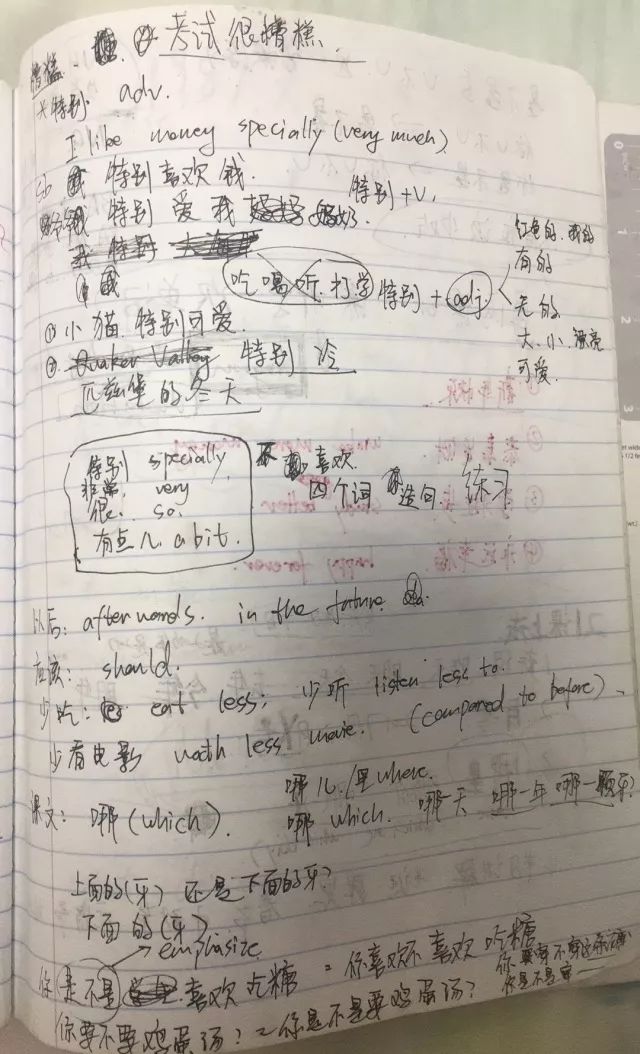 糟糕. 考试很糟糕.
*特别. adv.
I like money specially (very much)
sb 特别喜欢钱. 特别+V.
特别 爱 我 奶奶.
我 特别
吃 喝 听. 打 学 特别 + adj.
红色的. 我的
有的
无的
大. 小. 漂亮
可爱.
① 小猫 特别可爱.
② Quaker Valley 特别 冷
匹兹堡 的 冬天
特别 specially
非常. very
很. so.
有点儿. a bit.
喜欢
四个词 造句 练习
以后: afterwards. in the future.
应该: should.
少吃: eat less; 少听 listen less to.
少看电影 wacth less movie. (compared to before).
哪儿/里 where.
课文: 哪 (which). 哪 which. 哪天 哪一年 哪一颗牙?
上面的(牙) 还是 下面的牙?
下面的(牙)
emphasize
你 是不是 喜欢 吃糖 = 你喜欢不喜欢 吃糖
你要不要鸡蛋汤? = 你是不是要鸡蛋汤?